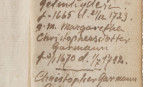 f. 1665 d. 9/12 1729.
g. m. Margarethe
Christophersdotter
Garmann
f. 1670 d. 1/5 1742.
Christopher Garmann